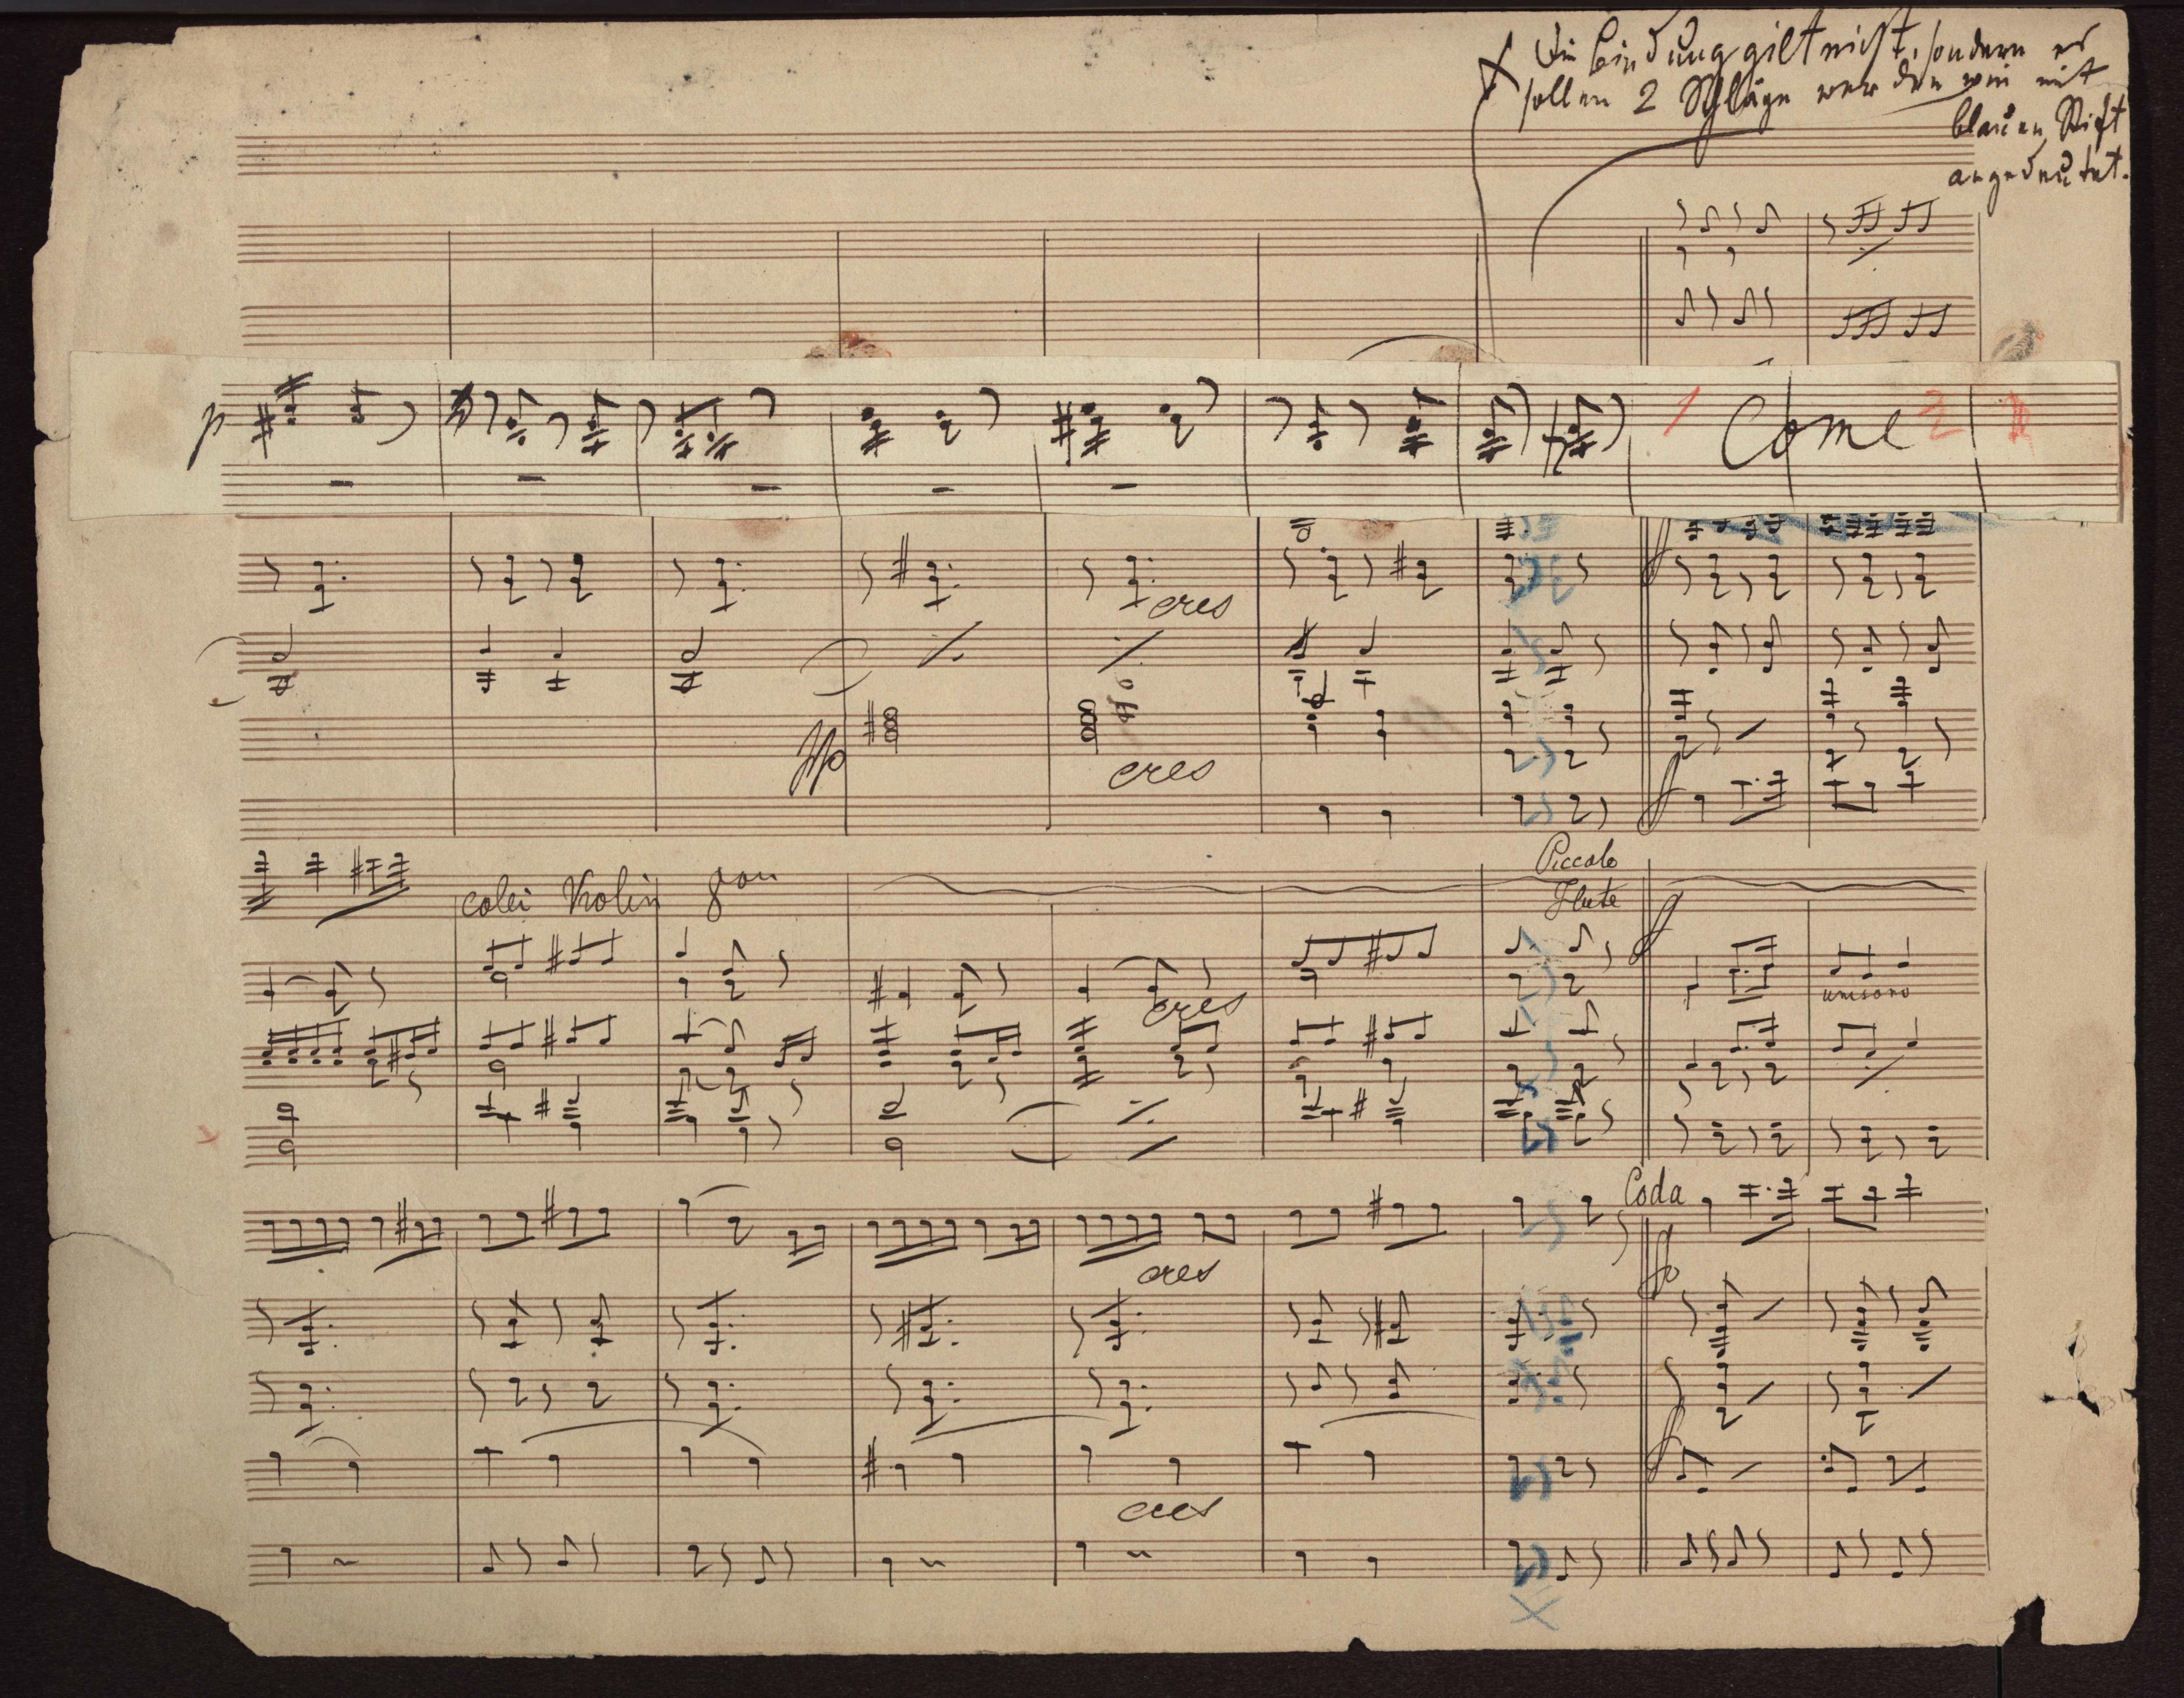 Die Bindung gilt nicht, sondern es
sollen 2 Schläge werden wie mit
blauen Stift
angedeutet.
p
1 Come 2
cres
cres
Piccolo
Flute
colei Violin
cres
unisono
Coda
cres
cres